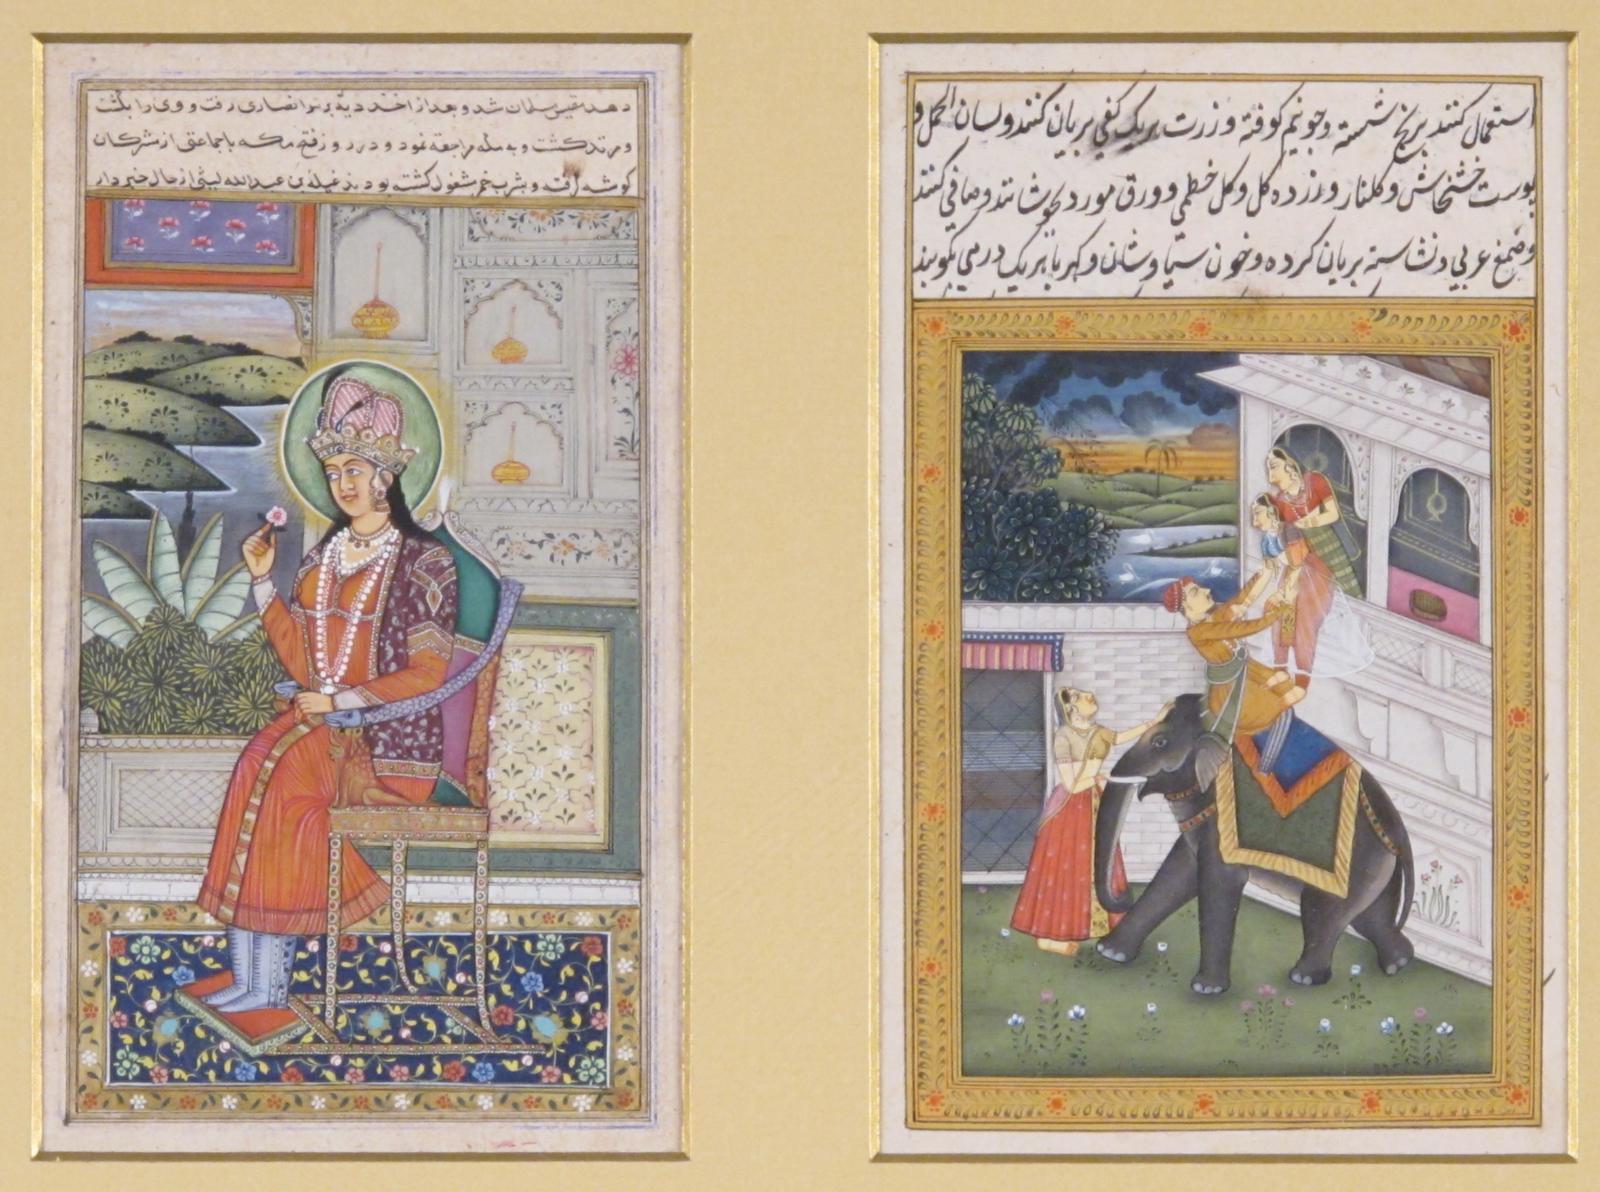 شد و بعد از اخذ دیه بر سر انصاری رفت و وی را بکشت
و مرتد کشت و به مکه مراجعه نمود و در روز فتح مکه با جماعتی از مشرکان
کوشه رفته و بشرب خمر مشغول کشته بودند عبدالله لیثی از حال خبردار
استعمال کنند برنج شسته و جو نیم کوفته و زرت بریک کفی بریان کنند و لسان الحمل و
پوست خشخاش و کلنار و زرده کل و کل خطمی و ورق مورد بجوشانند و صافی کنند
و صمغ عربی و نشاسته بریان کرده و خون سیاوشان و کهربا بریک درمی بکوبند